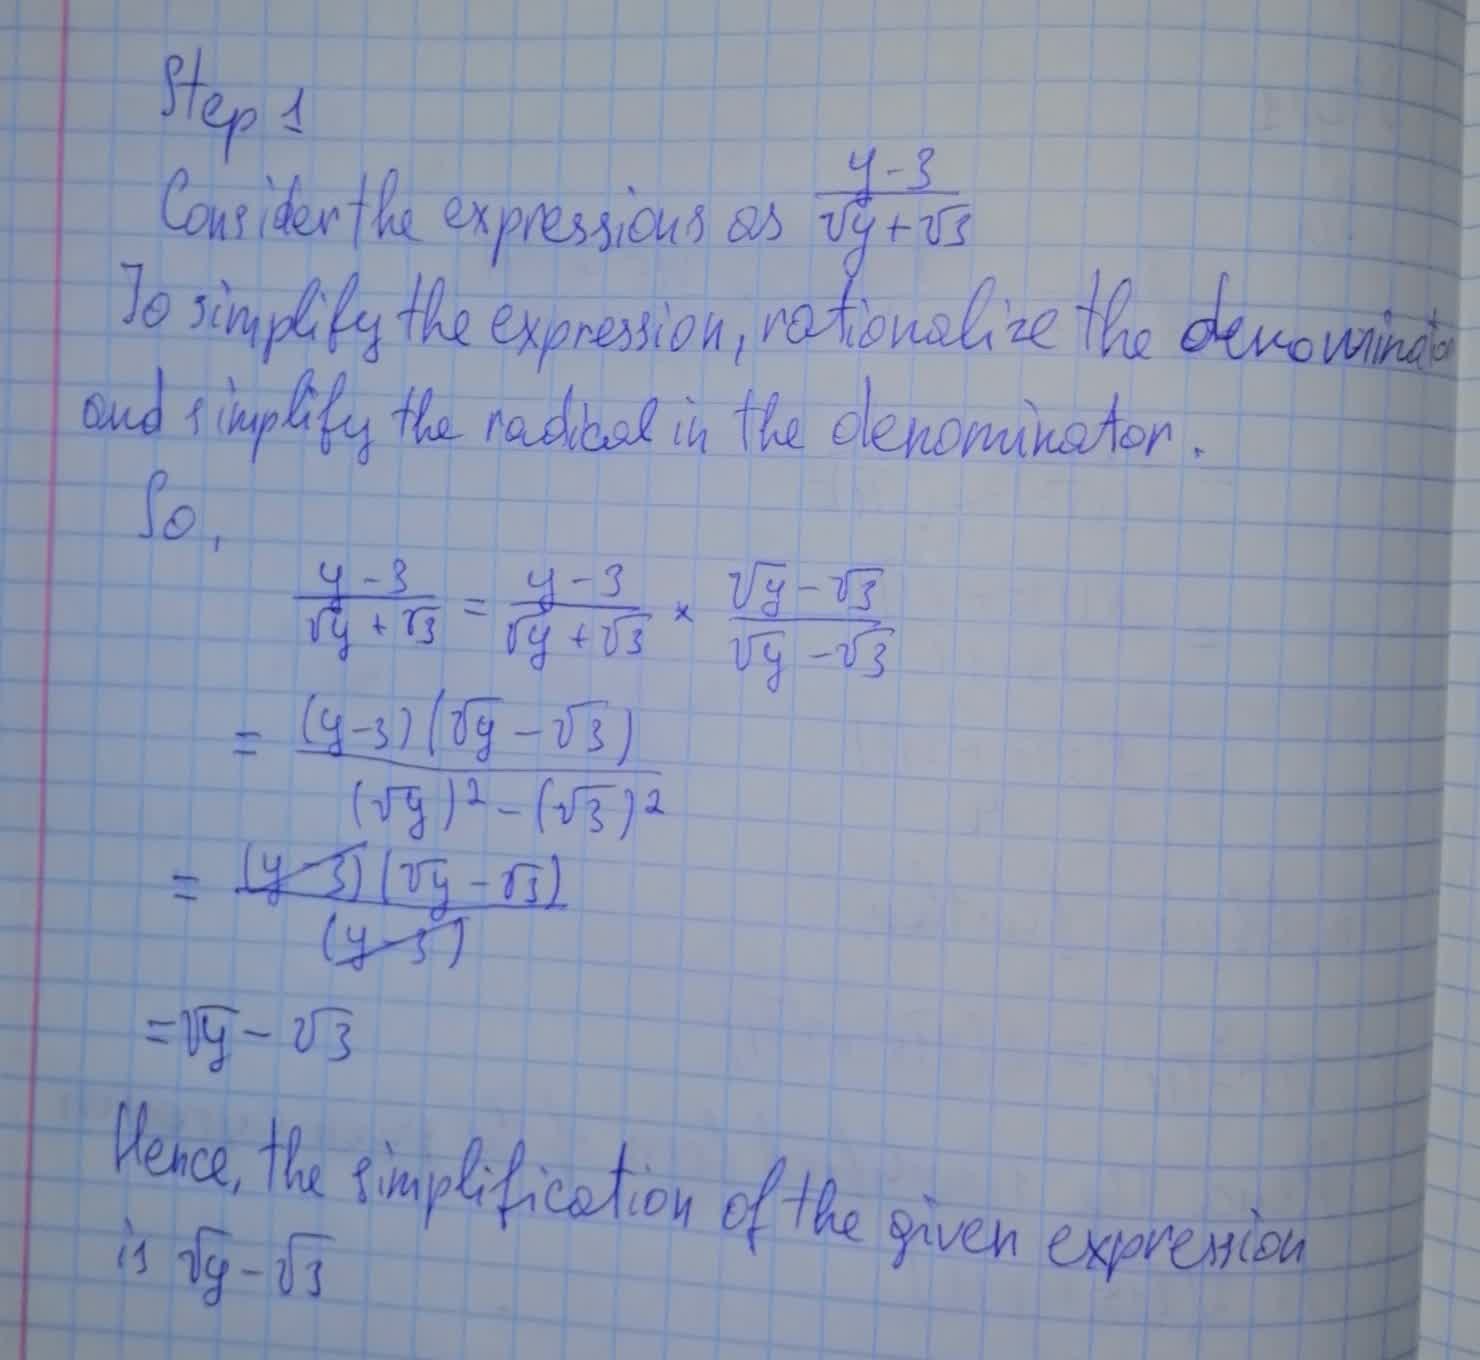 Step 1
Consider the expressions as (y-3)/(√y+√3)
To simplify the expression, rationalize the denominator
and simplify the radical in the denominator.
So,
(y-3)/(√y+√3) = (y-3)/(√y+√3) × (√y-√3)/(√y-√3)
= (y-3)(√y-√3)/((√y)²-(√3)²)
= (y-3)(√y-√3)/(y-3)
=√y-√3
Hence, the simplification of the given expression
is √y-√3